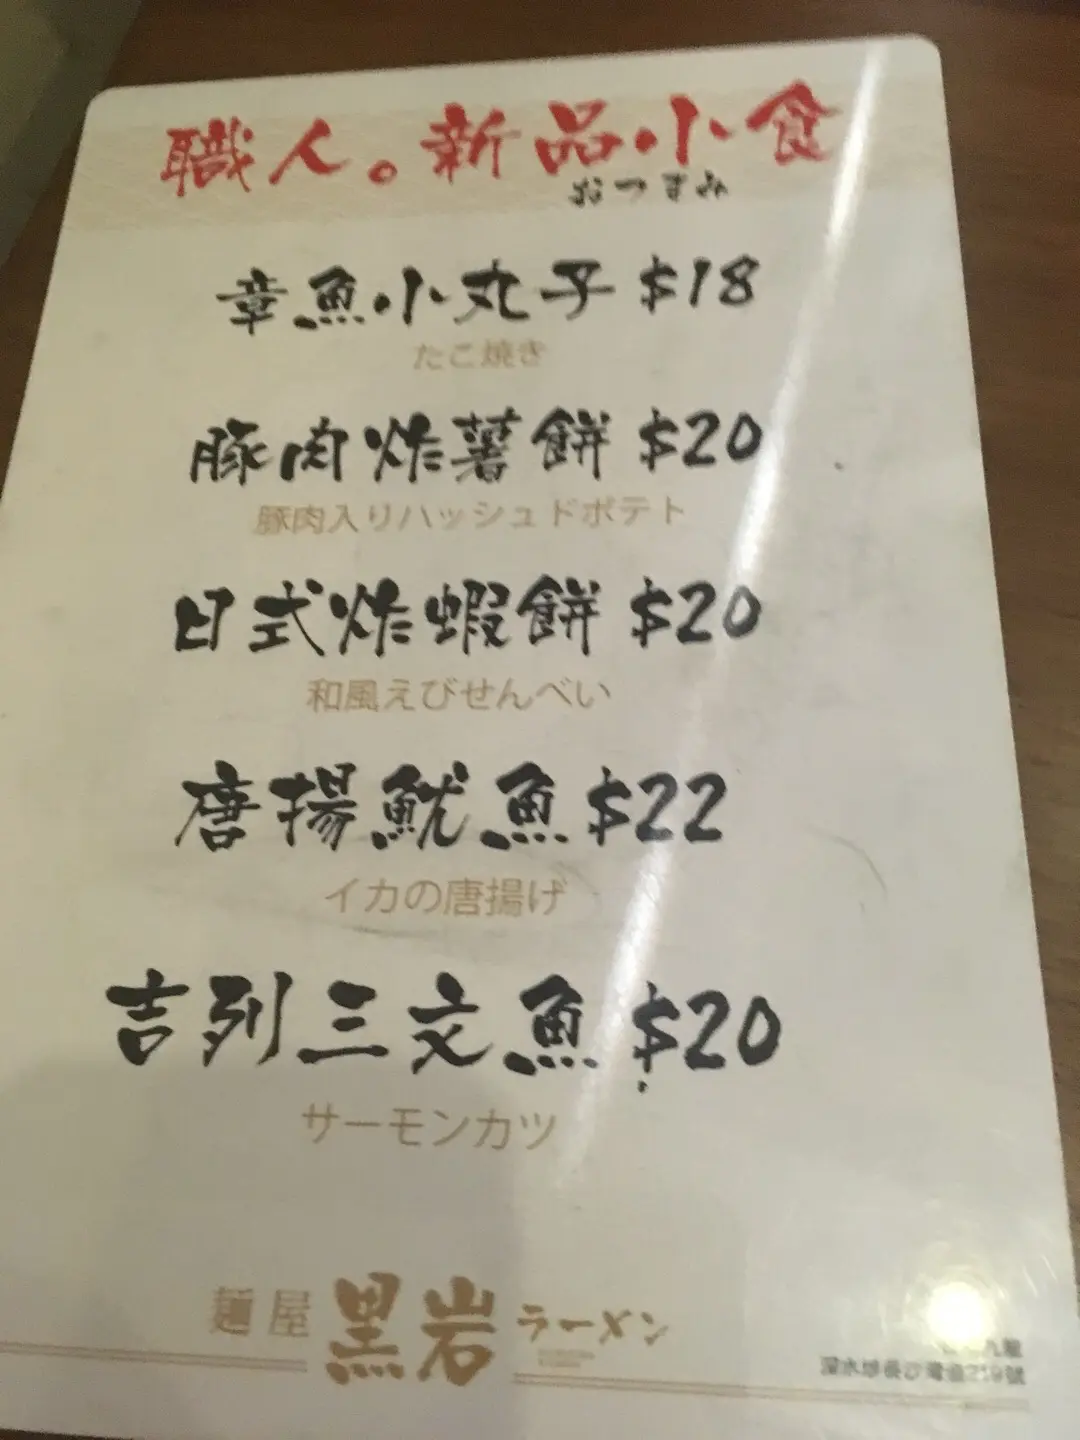 職人。新品小食
おつすみ
章魚小丸子 $18
たこ焼き
豚肉炸薯餅 $20
豚肉入りハッシュドポテト
日式炸蝦餅 $20
和風えびせんべい
唐揚魷魚 $22
イカの唐揚げ
吉列三文魚 $20
サーモンカツ
麵屋 黒岩 ラーメン
九龍
深水埗長沙灣道219號